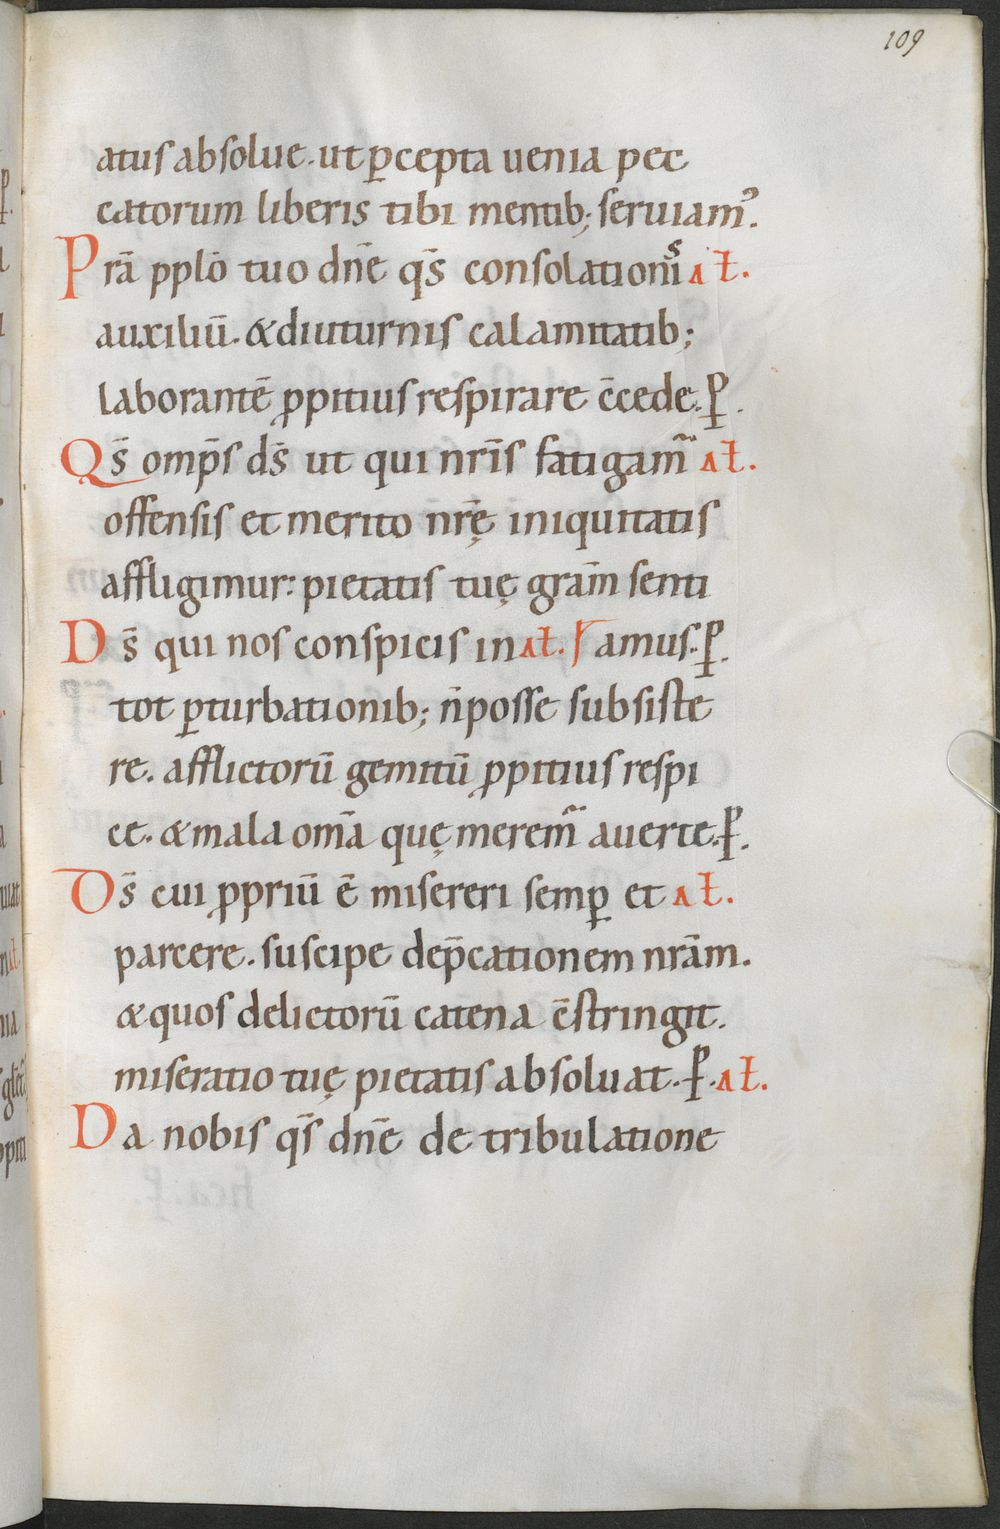 109
atus absolue. ut p̄cepta uenia pec
catorum liberis tibi mentib; seruiam᾽.
Prā pplō tuo dn̄e qs̄ consolationis̄ ał.
auxiliū. & diuturnis calamitatib;
laborantē ꝓpitius respirare c̄cede. ꝑ.
Qs̄ omp̄s ds̄ ut qui nr̄is fatigam̄ ał.
offensis et merito nr̄ę iniquitatis
affligimur: pietatis tuę grām senti
Ds̄ qui nos conspicis in ał. amus. ꝑ.
tot ꝑturbationib; n̄ posse subsiste
re. afflictorū gemitū ꝓpitius respi
ce. & mala om̄a quę merem̄ auerte. ꝑ.
Ds̄ cui ꝓpriū ē misereri semꝑ et ał.
parcere. suscipe dep̄cationem nrām.
& quos delictorū catena c̄stringit.
miseratio tuę pietatis absoluat. ꝑ. ał.
Da nobis qs̄ dn̄e de tribulatione